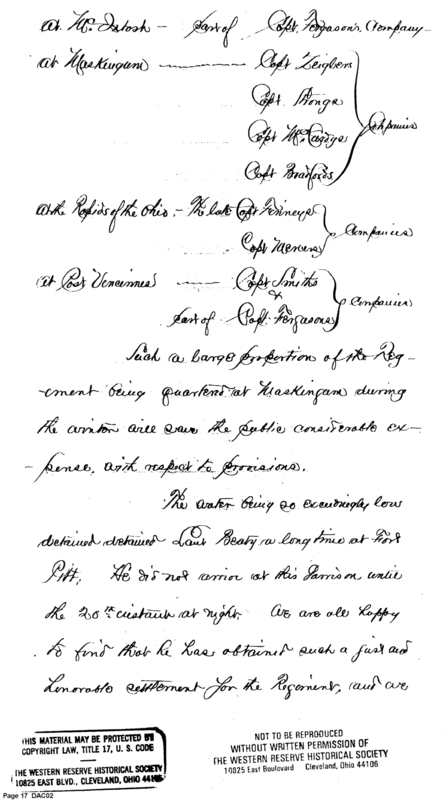 at Mc Intosh — part of Capt Fergason's Company.
at Muskingum ——— Capt Zeiglers
Capt Strongs
Capt Mc Curdys Companies
Capt Bradfords
at the Rapids of the Ohio — The late Capt Finneys
Capt Mercers Companies
at Post Vincennes —— Capt Smiths
&
part of Capt Fergasons Companies
Such a large proportion of the Reg-
-ement being quartered at Muskingum during
the winter will save the public considerable ex-
-pense, with respect to provisions.
The water being so exceedingly low
detained detained Lieut Beaty a long time at Fort
Pitt, He did not arrive at this Garrison until
the 20th instant at night. We are all happy
to find that he has obtained such a just and
honorable settlement for the Regiment, and we
THIS MATERIAL MAY BE PROTECTED BY
COPYRIGHT LAW, TITLE 17, U. S. CODE
THE WESTERN RESERVE HISTORICAL SOCIETY
10825 EAST BLVD., CLEVELAND, OHIO 44106
NOT TO BE REPRODUCED
WITHOUT WRITTEN PERMISSION OF
THE WESTERN RESERVE HISTORICAL SOCIETY
10825 East Boulevard Cleveland, Ohio 44106
Page 17 DAC02